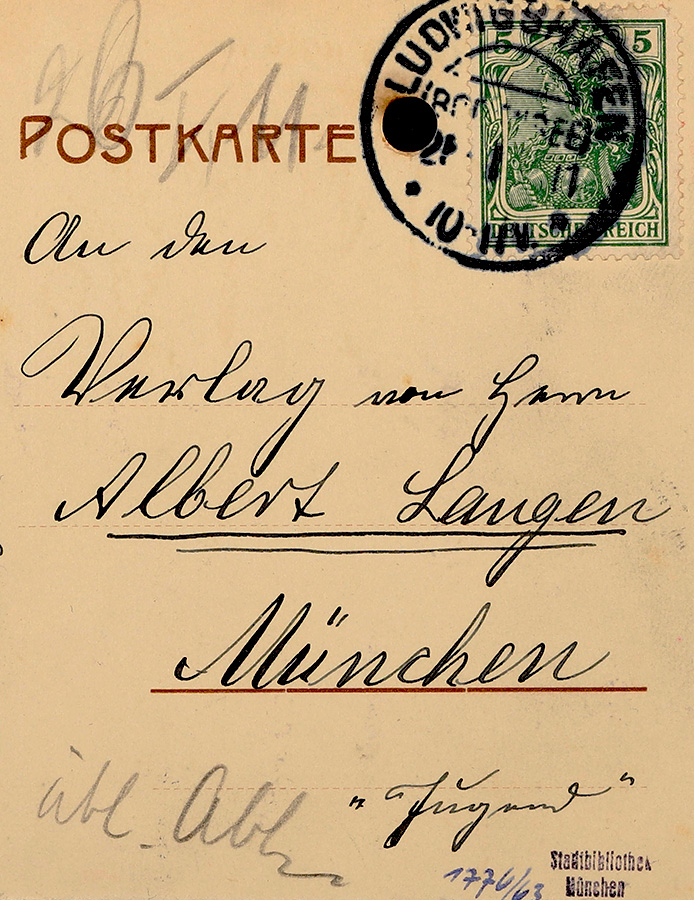 POSTKARTE
LUDWIGSHAFEN
11
10-11V.
5 5
DEUTSCHES REICH
An den
Verlag von Herrn
Albert Langen
München
übl. Abl.
"Jugend"
1776/63
Stadtbibliothek
München